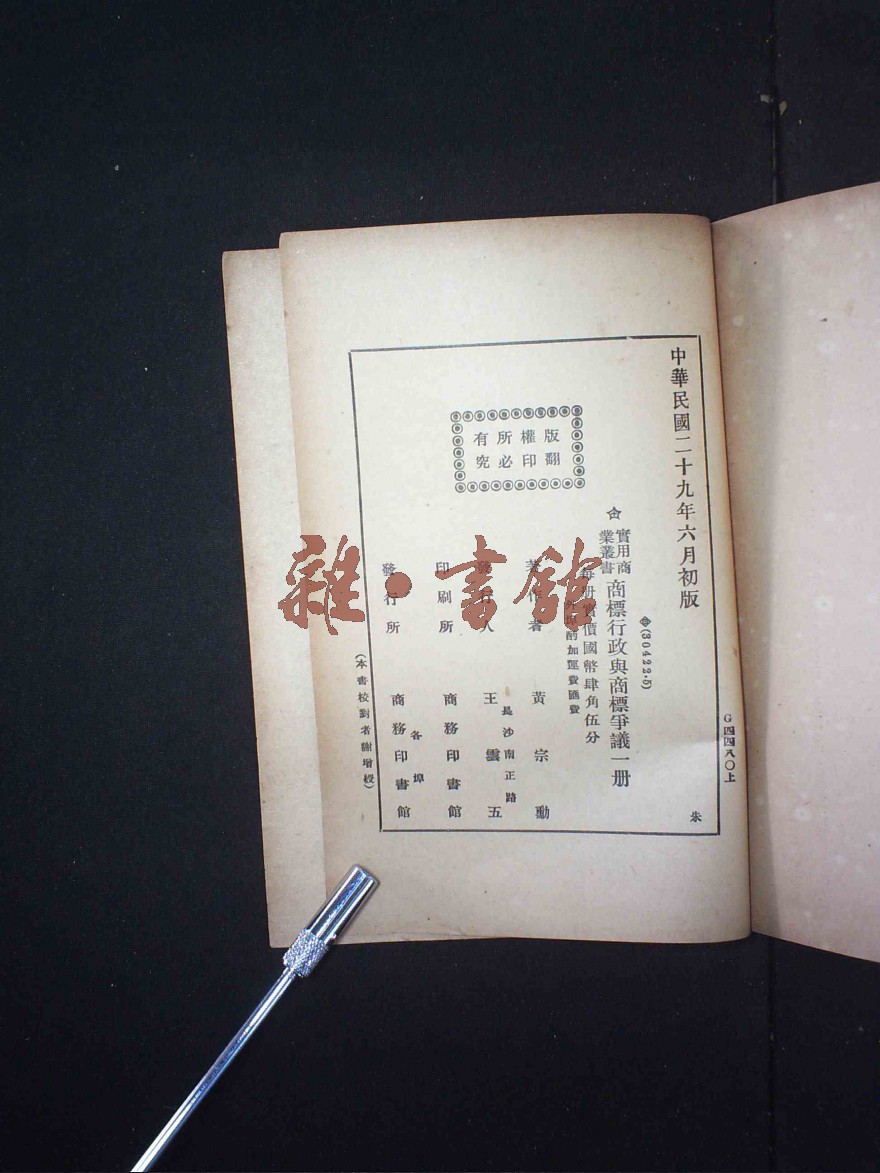 中華民國二十九年六月初版
(30422·5)
實用商業叢書
商標行政與商標爭議一册
每册實價國幣肆角伍分
外埠酌加運費匯費
著作者 黃宗勳
發行人 王雲五
長沙南正路
印刷所 商務印書館
發行所 各埠 商務印書館
版權所有
翻印必究
(本書校對者謝增授)
G四四八〇上
朱
雜·書館